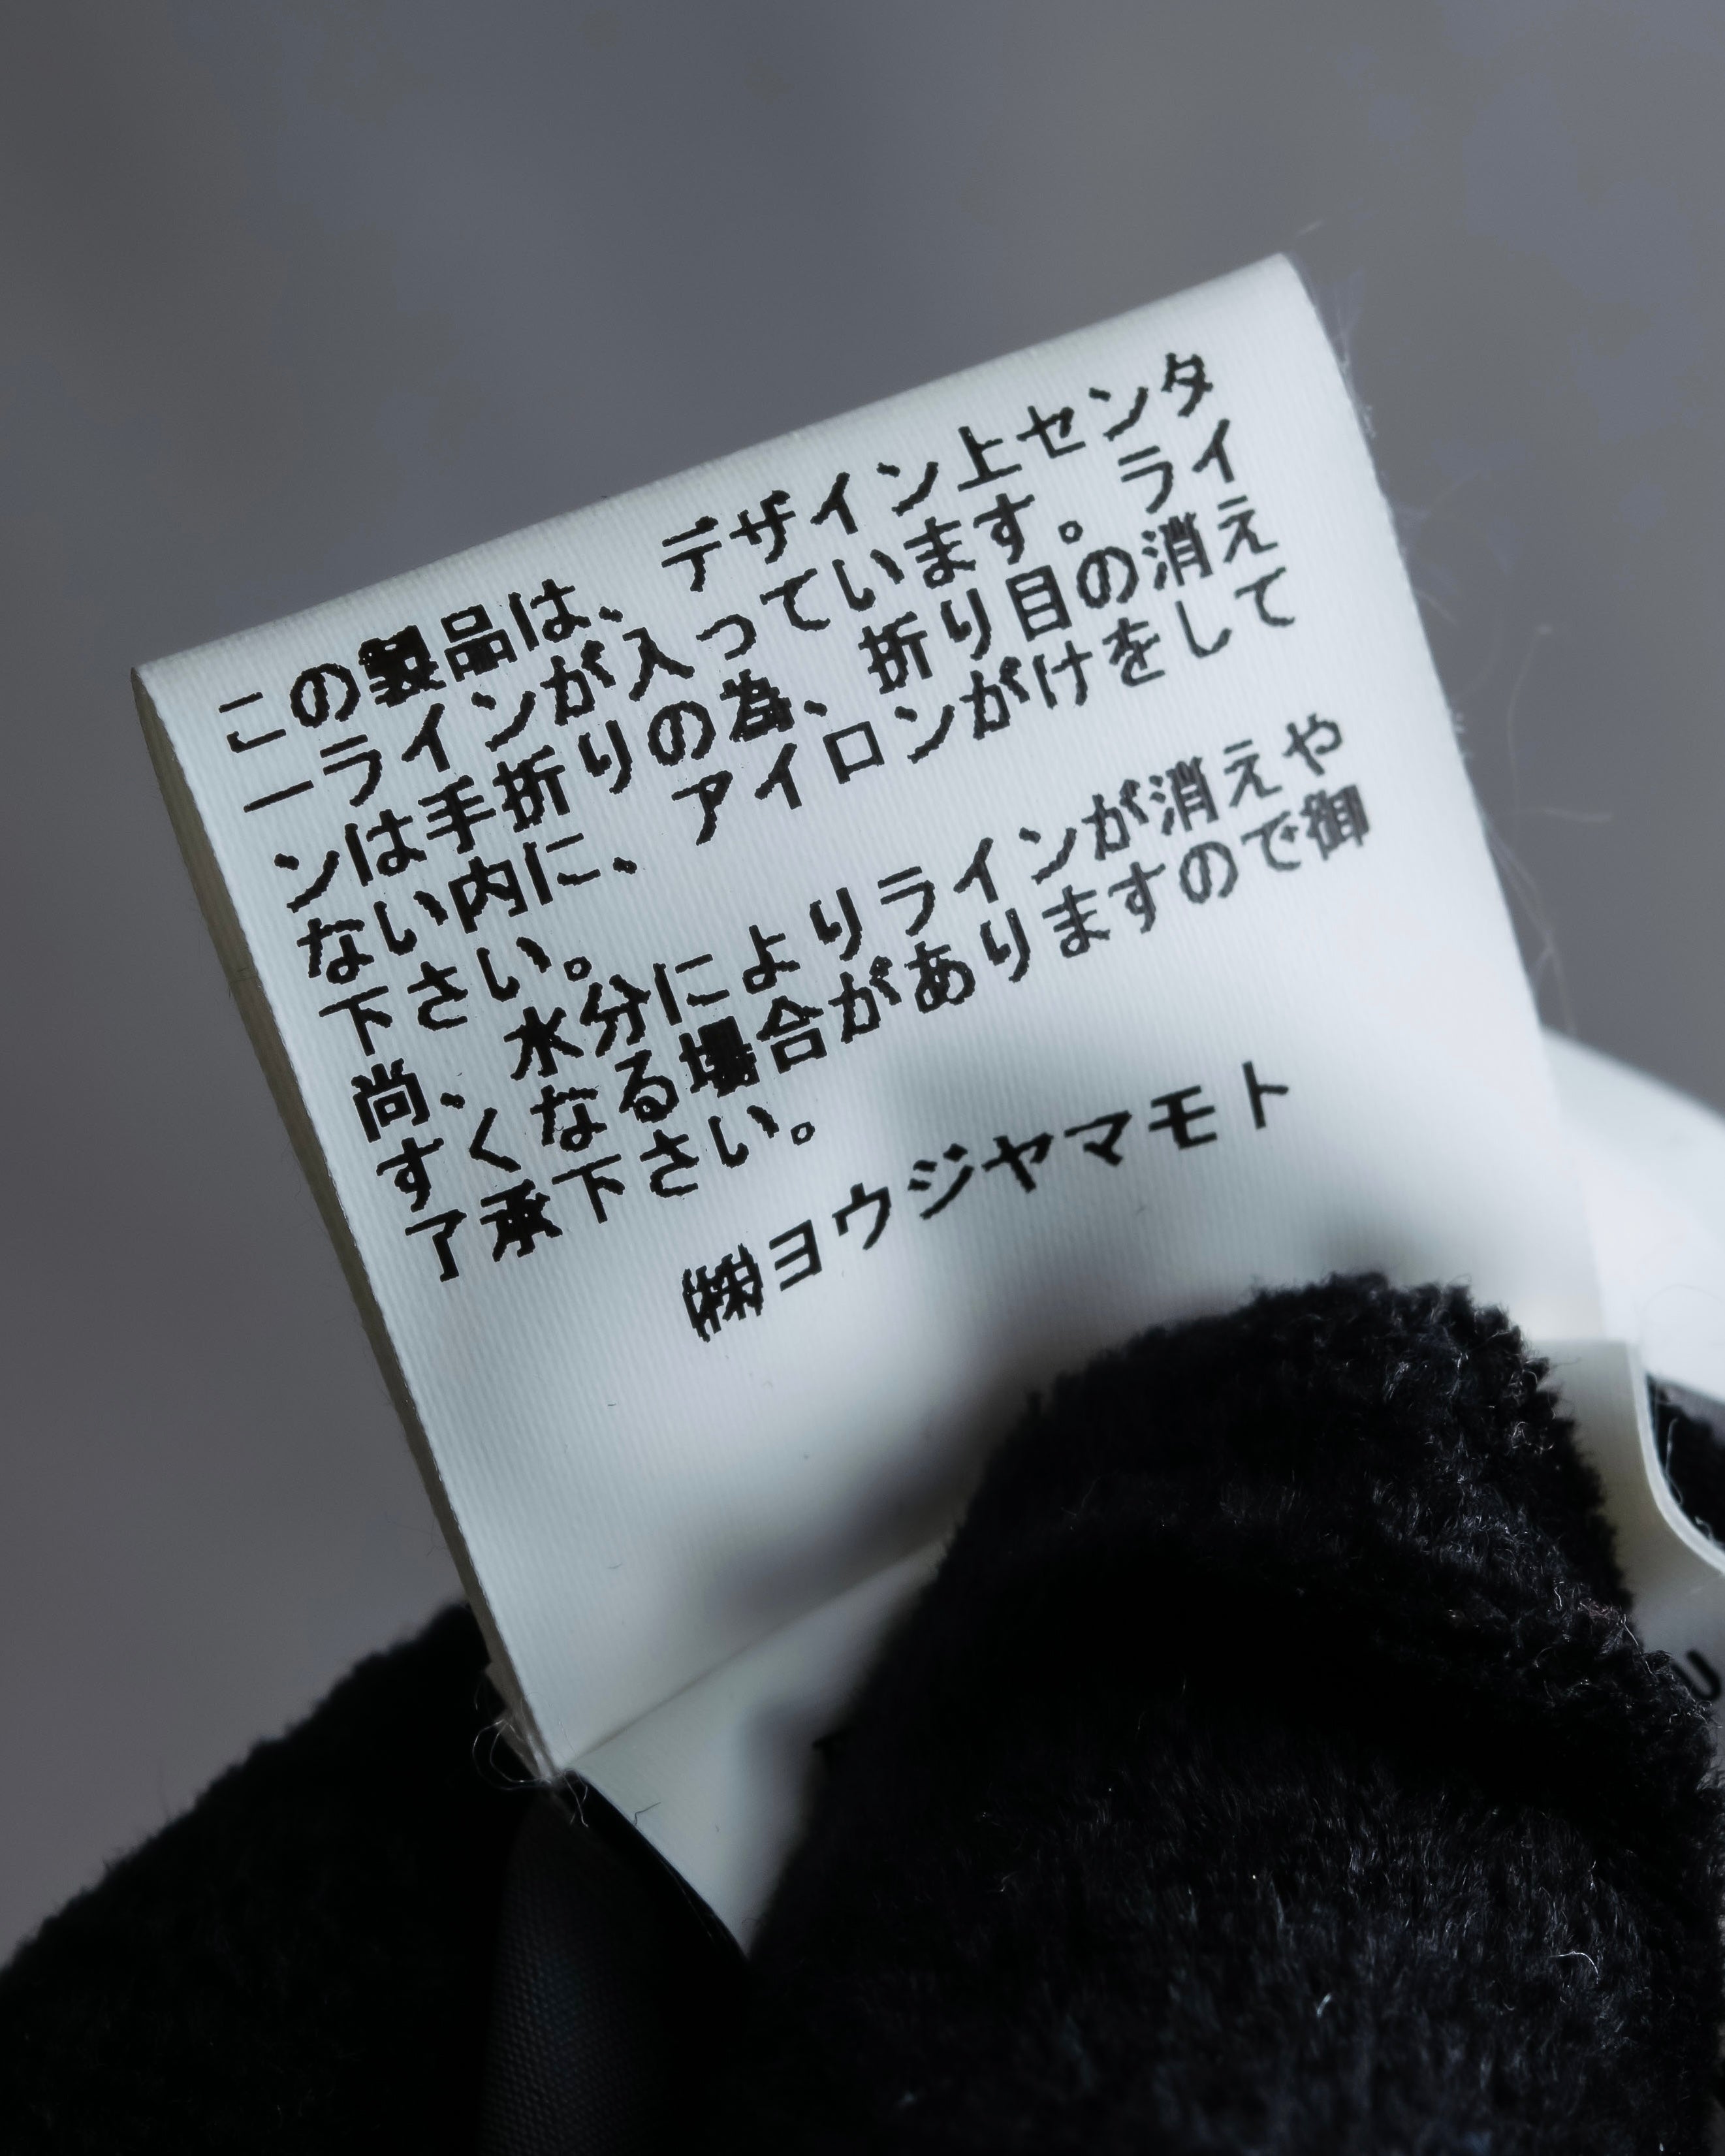 この製品は、デザイン上センタ
ーラインが入っています。ライ
ンは手折りの為、折り目の消え
ない内に、アイロンがけをして
下さい。
尚、水分によりラインが消えや
すくなる場合がありますので御
了承下さい。
㈱ヨウジヤマモト
U